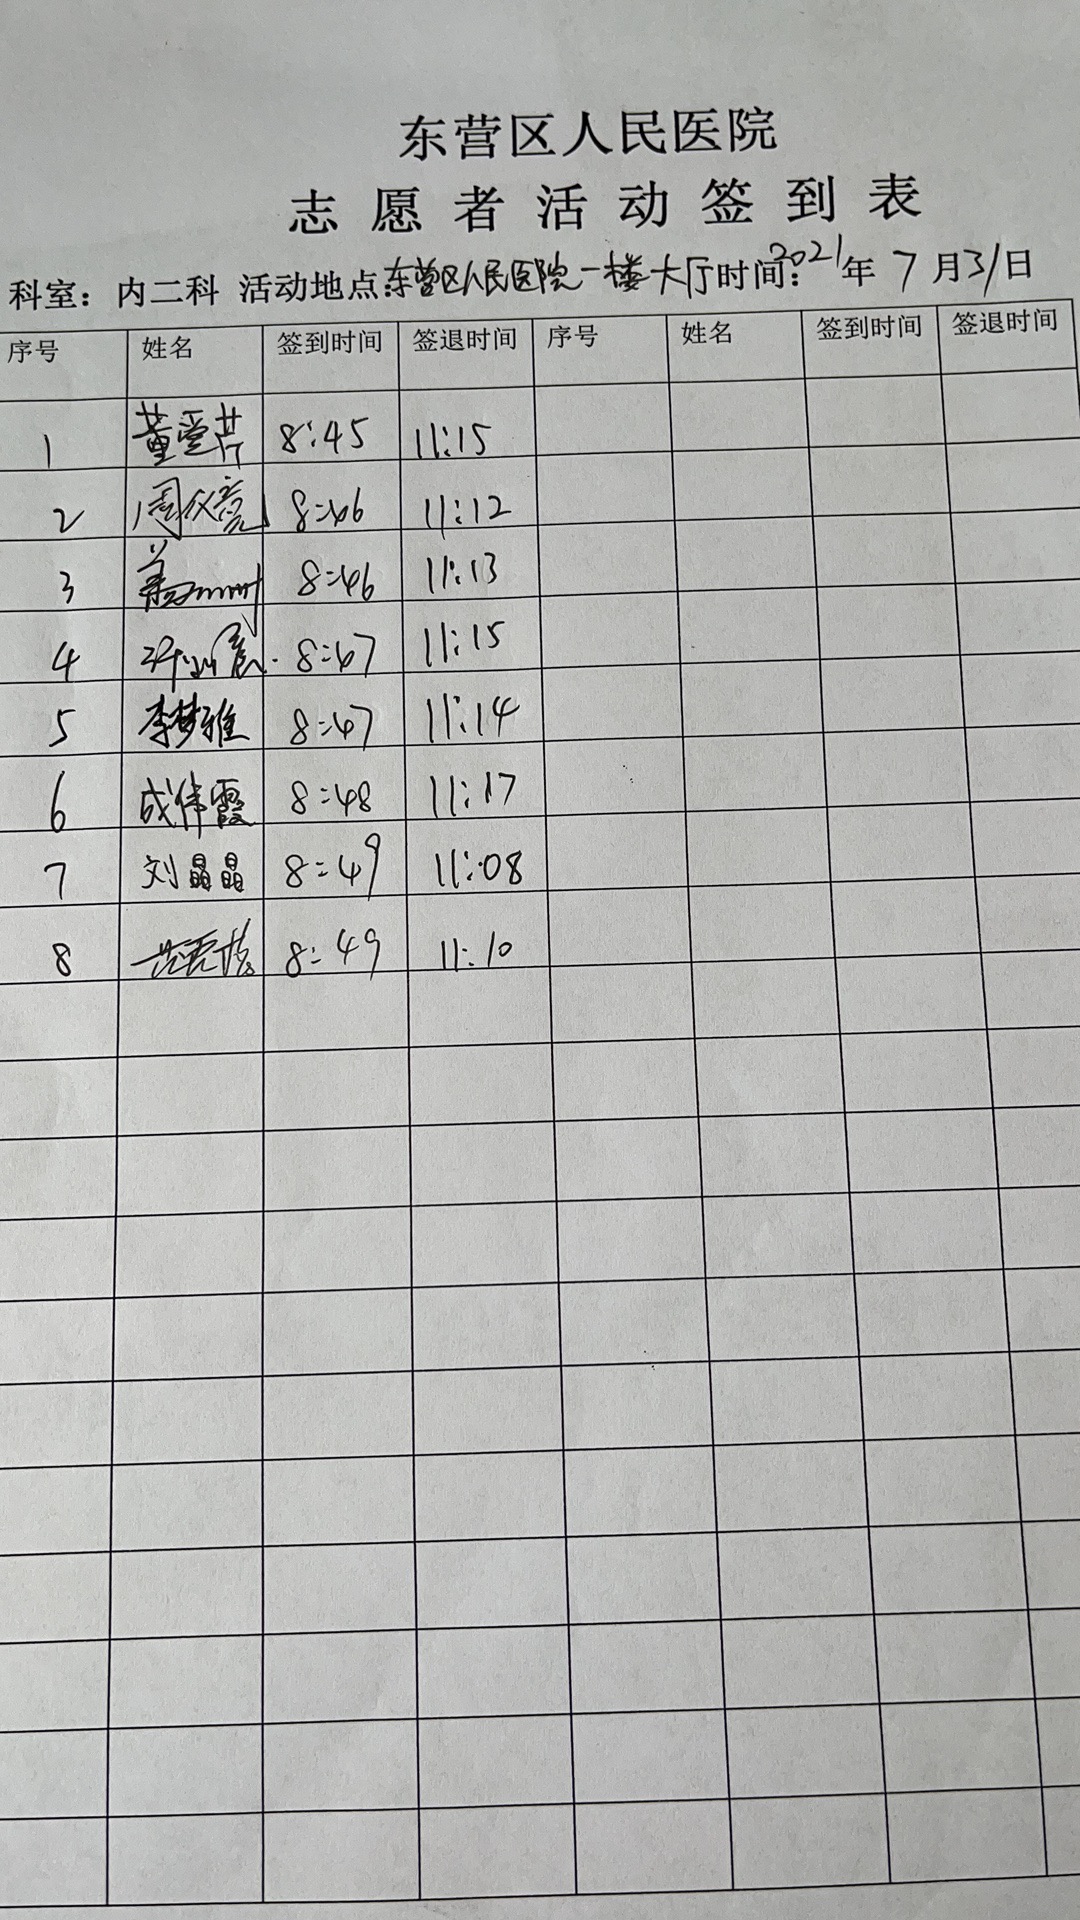 东营区人民医院
志愿者活动签到表
科室：内二科 活动地点:东营区人民医院一楼大厅时间：2021年7月31日
序号 姓名 签到时间 签退时间 序号 姓名 签到时间 签退时间
1 董爱芹 8:45 11:15
2 周仪亮 8:46 11:12
3 8:46 11:13
4 8:47 11:15
5 李梦雅 8:47 11:14
6 成伟霞 8:48 11:17
7 刘晶晶 8:49 11:08
8 8:49 11:10